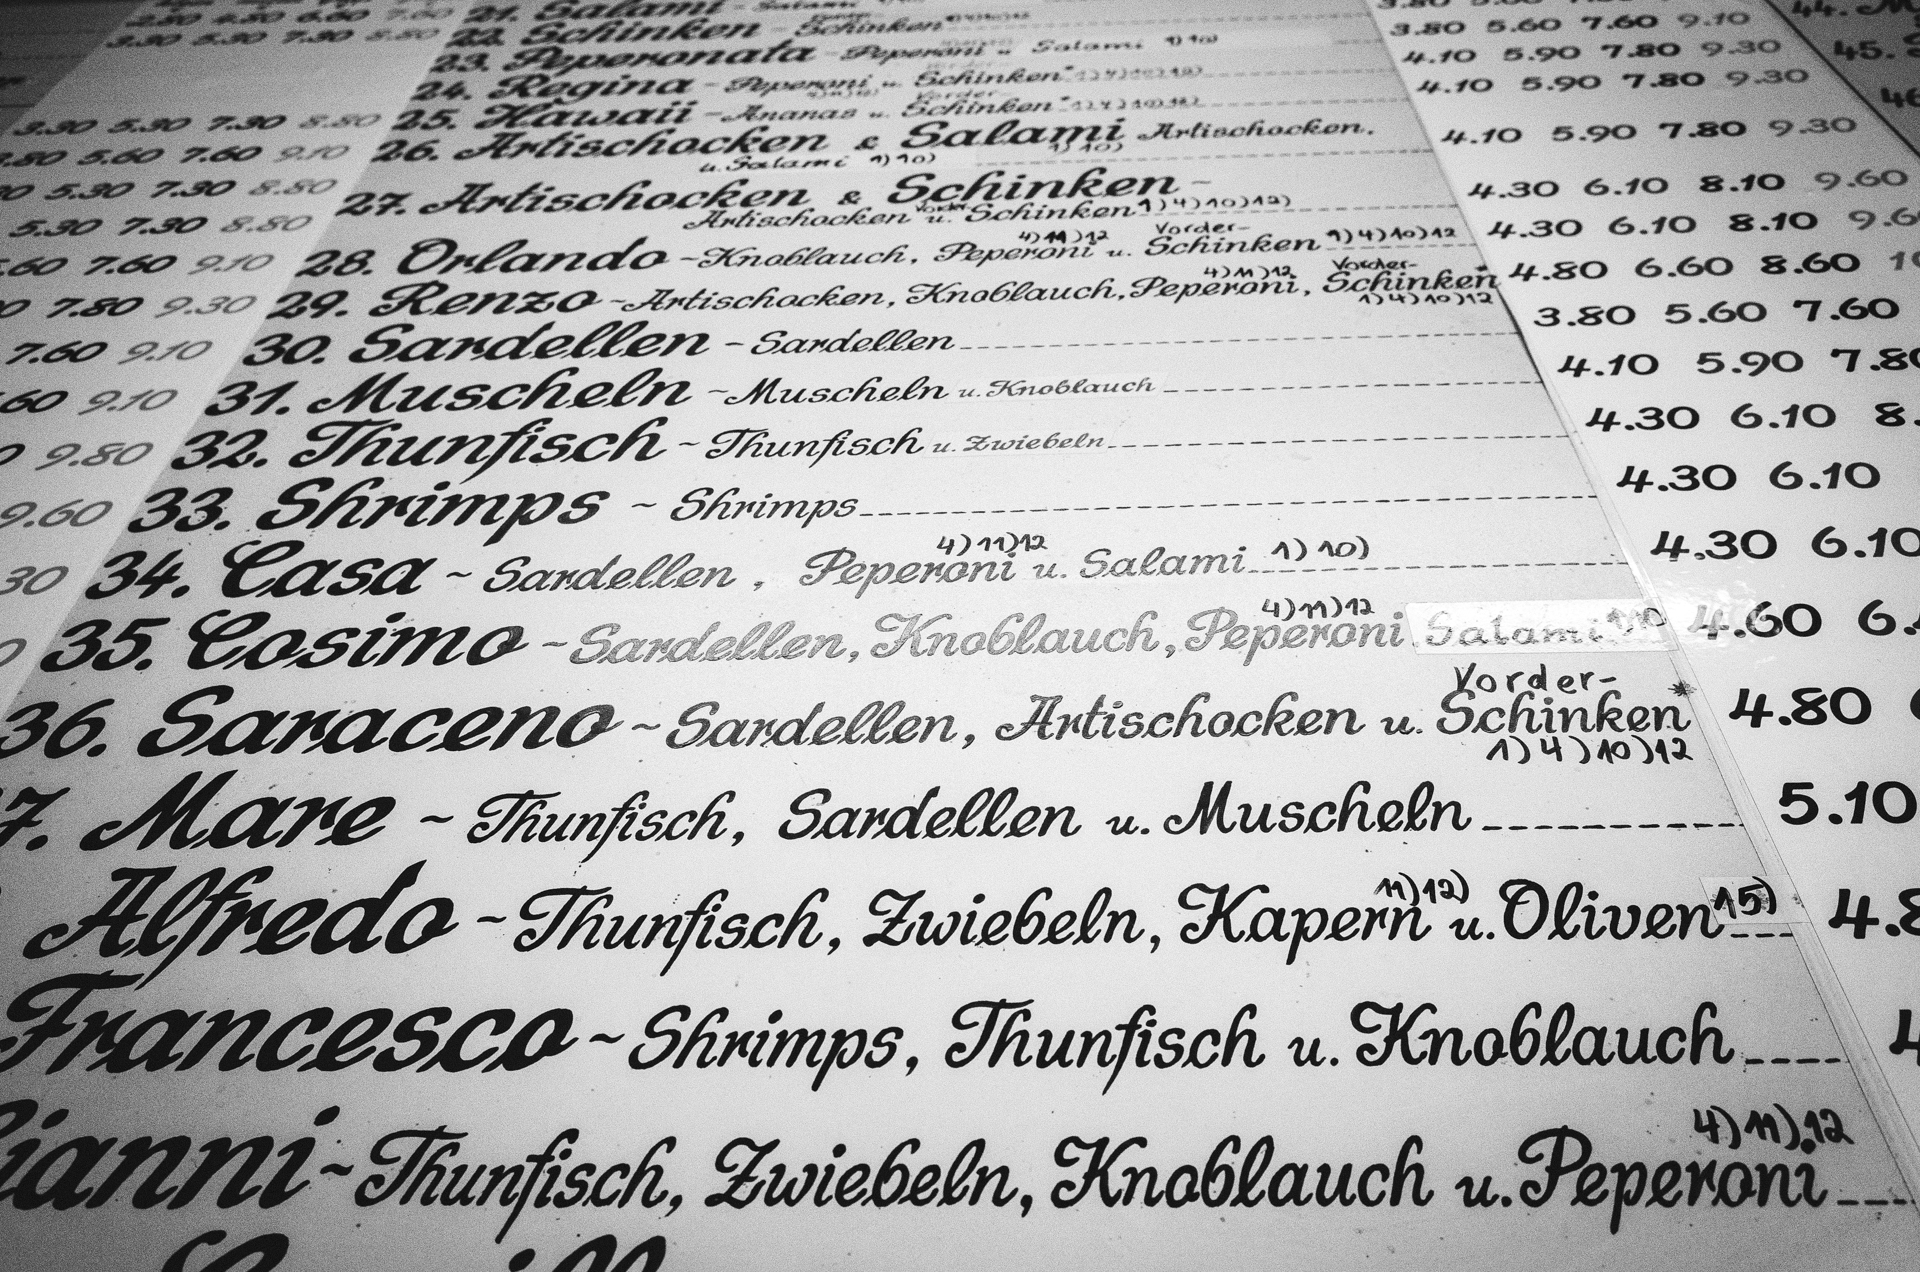 3.80 5.60 7.60
21. Salami ~ Salami
3.30 5.30 7.30 8.80 22. Schinken ~ Schinken 3.80 5.60 7.60 9.10
23. Peperonata ~ Peperoni u. Salami 1) 10) 4.10 5.90 7.80 9.30 45.
24. Regina ~ Peperoni u. Schinken 4.10 5.90 7.80 9.30
3.30 5.30 7.30 8.80 25. Hawaii ~ Ananas u. Schinken 4.10 5.90 7.80 9.30
3.80 5.60 7.60 9.10 26. Artischocken & Salami Artischocken.
u. Salami 1) 10) 4.30 6.10 8.10 9.60
5.30 7.30 8.80 27. Artischocken & Schinken ~
5.30 7.30 8.80 Artischocken u. Vorder-Schinken 1) 4) 10) 12) 4.30 6.10 8.10
7.60 9.10 28. Orlando ~ Knoblauch, Peperoni 4) 11) 12 u. Vorder-Schinken 1) 4) 10) 12 4.80 6.60 8.60
7.80 9.30 29. Renzo ~ Artischocken, Knoblauch, Peperoni 4) 11) 12, Vorder-Schinken 1) 4) 10) 12
7.60 9.10 30. Sardellen ~ Sardellen 3.80 5.60 7.60
9.10 31. Muscheln ~ Muscheln u. Knoblauch 4.10 5.90 7.80
9.80 32. Thunfisch ~ Thunfisch u. Zwiebeln 4.30 6.10 8.
9.60 33. Shrimps ~ Shrimps 4.30 6.10
30 34. Casa ~ Sardellen, Peperoni 4) 11) 12 u. Salami 1) 10) 4.30 6.10
35. Cosimo ~ Sardellen, Knoblauch, Peperoni 4) 11) 12 Salami 1) 10 4.60 6.
36. Saraceno ~ Sardellen, Artischocken u. Vorder-Schinken 1) 4) 10) 12 4.80
7. Mare ~ Thunfisch, Sardellen u. Muscheln 5.10
Alfredo ~ Thunfisch, Zwiebeln, Kapern 11) 12) u. Oliven 15) 4.8
Francesco ~ Shrimps, Thunfisch u. Knoblauch 4
ianni ~ Thunfisch, Zwiebeln, Knoblauch u. Peperoni 4) 11) 12